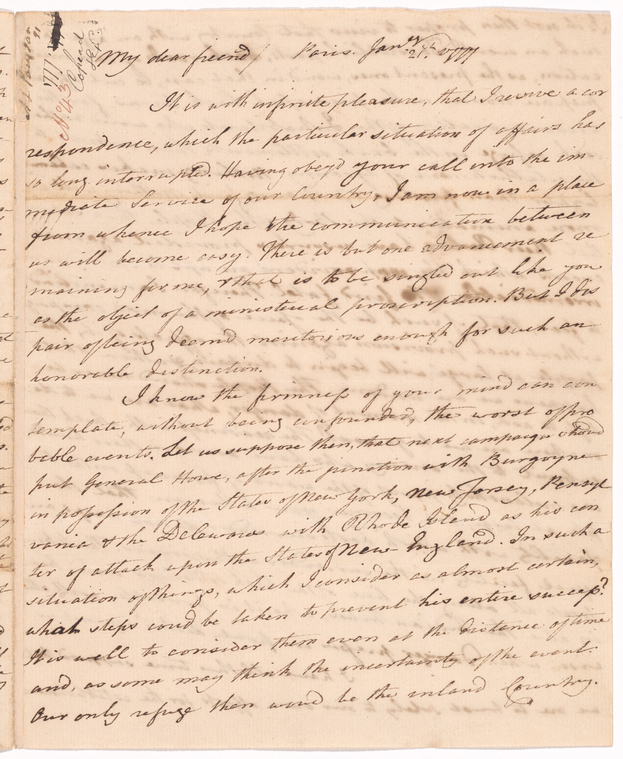 My dear friend, Paris. Jany 27th 1777
1777
No 43
Copied
It is with infinite pleasure, that I revive a cor
respondence, which the particular situation of affairs has
so long interrupted. Having obeyd your call into the im-
mediate Service of our Country, I am now in a place
from whence I hope the communication between
us will become easy. There is but one advancement re
maining for me, & that is to be singled out like you
as the object of a ministerial proscription. But I dis
pair of being deemd meritorious enough for such an
honorable distinction.
I know the firmness of your mind can con
template, without being confounded, the worst of pro
bable events. Let us suppose then, that next campaign shoud
put General Howe, after the junction with Burgoyne
in possession of the States of New York, New Jersey, Pensyl
vania & the Delawares with Rhode Island as his cen
ter of attack upon the States of New England. In such a
situation of things, which I consider as almost certain,
what steps coud be taken to prevent his entire success?
It is well to consider them even at the distance of time
and, as some may think the incertainty of the event.
Our only refuge then woud be the inland Country.